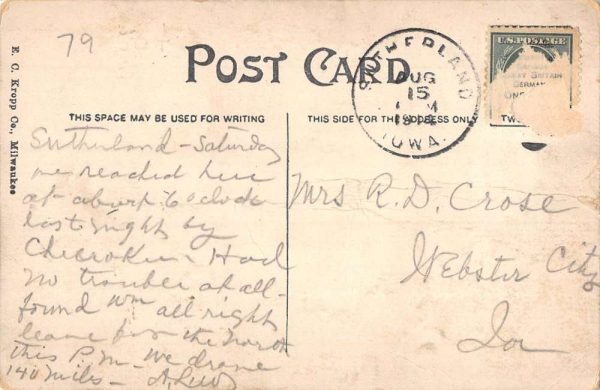 79
E. C. Kropp Co., Milwaukee
POST CARD.
SUTHERLAND
AUG
15
M
IOWA.
U.S. POSTAGE
GREAT BRITAIN
GERMAN
ONE
TWO
THIS SPACE MAY BE USED FOR WRITING
THIS SIDE FOR THE ADDRESS ONLY
Sutherland - Saturday
we reached here
at about 6 o'clock
last night by
Cherokee - Had
no trouble at all -
found all right
leave for the North
this P.M. - We drove
140 miles -
Mrs R. D. Crose
Webster City
Ia